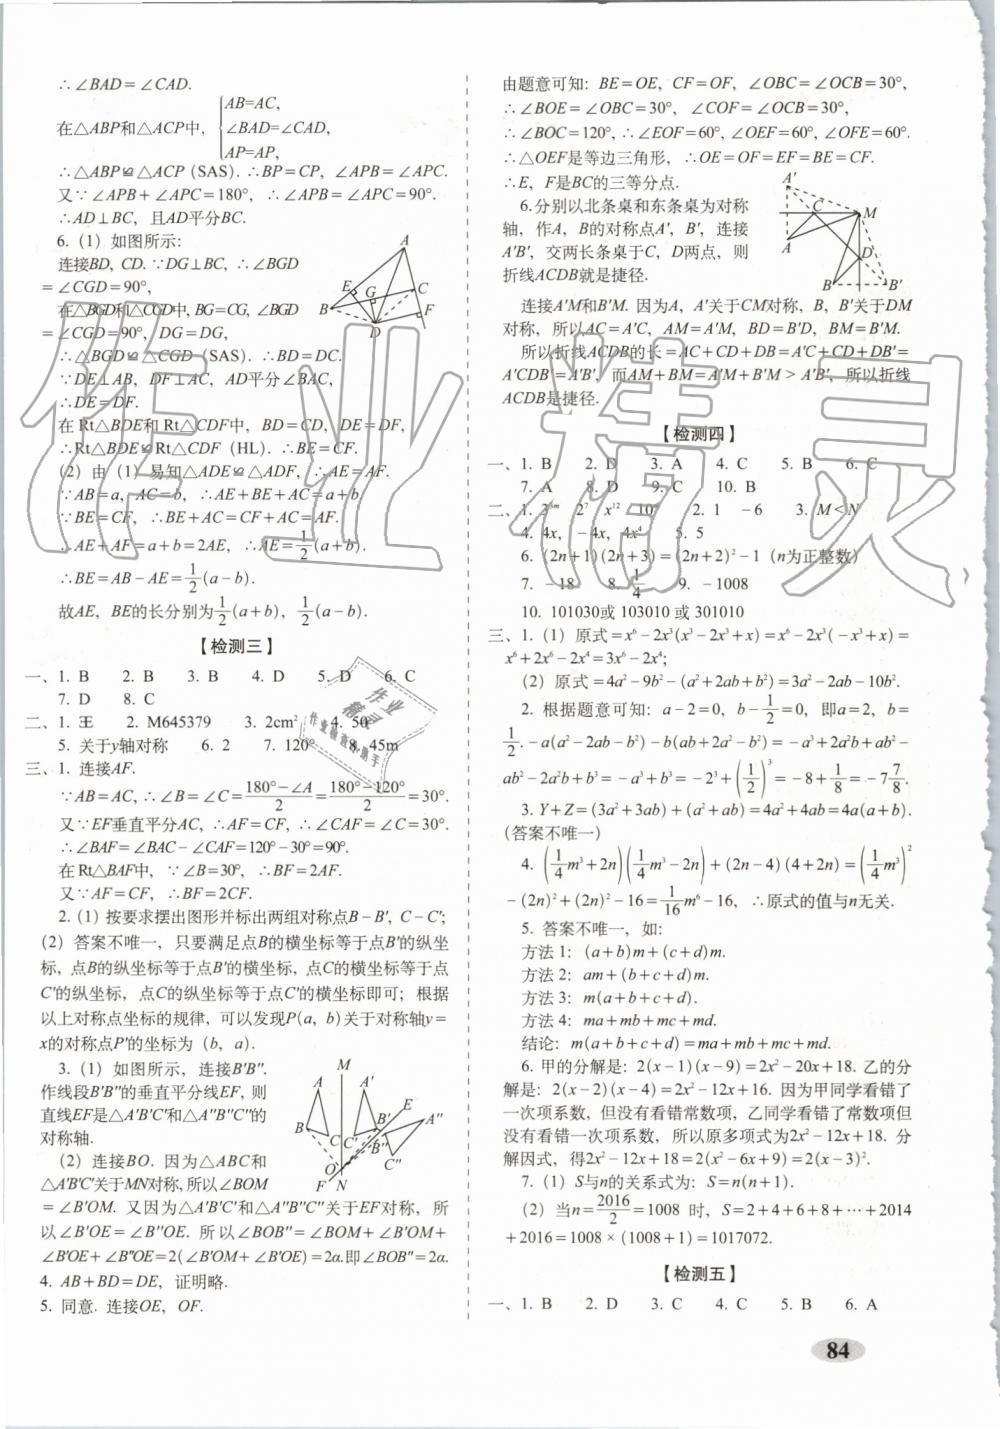 ∴∠BAD=∠CAD.
在△ABP和△ACP中, { AB=AC,
∠BAD=∠CAD,
AP=AP,
∴△ABP≌△ACP (SAS). ∴BP=CP, ∠APB=∠APC.
又∵∠APB+∠APC=180°, ∴∠APB=∠APC=90°.
∴AD⊥BC, 且AD平分BC.
6. (1) 如图所示:
连接BD, CD. ∵DG⊥BC, ∴∠BGD
=∠CGD=90°,
在△BGD和△CGD中, BG=CG, ∠BGD
=∠CGD=90°, DG=DG,
∴△BGD≌△CGD (SAS). ∴BD=DC.
∵DE⊥AB, DF⊥AC, AD平分∠BAC,
∴DE=DF.
在Rt△BDE和Rt△CDF中, BD=CD, DE=DF,
∴Rt△BDE≌Rt△CDF (HL). ∴BE=CF.
(2) 由 (1) 易知△ADE≌△ADF, ∴AE=AF.
∵AB=a, AC=b, ∴AE+BE+AC=a+b.
∵BE=CF, ∴BE+AC=CF+AC=AF.
∴AE+AF=a+b=2AE, ∴AE=1/2(a+b).
∴BE=AB-AE=1/2(a-b).
故AE, BE的长分别为1/2(a+b), 1/2(a-b).
A
E G C
B F
D
【检测三】
一、1. B 2. B 3. B 4. D 5. D 6. C
7. D 8. C
二、1. 王 2. M645379 3. 2cm² 4. 50°
5. 关于y轴对称 6. 2 7. 120° 8. 45m
三、1. 连接AF.
∵AB=AC, ∴∠B=∠C=(180°-∠A)/2=(180°-120°)/2=30°.
又∵EF垂直平分AC, ∴AF=CF, ∴∠CAF=∠C=30°.
∴∠BAF=∠BAC-∠CAF=120°-30°=90°.
在Rt△BAF中, ∵∠B=30°, ∴BF=2AF.
又∵AF=CF, ∴BF=2CF.
2. (1) 按要求摆出图形并标出两组对称点B-B′, C-C′;
(2) 答案不唯一, 只要满足点B的横坐标等于点B′的纵坐
标, 点B的纵坐标等于点B′的横坐标, 点C的横坐标等于点
C′的纵坐标, 点C的纵坐标等于点C′的横坐标即可; 根据
以上对称点坐标的规律, 可以发现P(a, b)关于对称轴y=
x的对称点P′的坐标为 (b, a).
3. (1) 如图所示, 连接B′B″.
作线段B′B″的垂直平分线EF, 则
直线EF是△A′B′C′和△A″B″C″的
对称轴.
(2) 连接BO. 因为△ABC和
△A′B′C′关于MN对称, 所以∠BOM
=∠B′OM. 又因为△A′B′C′和△A″B″C″关于EF对称, 所
以∠B′OE=∠B″OE. 所以∠BOB″=∠BOM+∠B′OM+
∠B′OE+∠B″OE=2(∠B′OM+∠B′OE)=2α.即∠BOB″=2α.
M
A A′ E
B C C′ B′ A″
B″
O C″
F N
4. AB+BD=DE, 证明略.
5. 同意. 连接OE, OF.
由题意可知: BE=OE, CF=OF, ∠OBC=∠OCB=30°,
∴∠BOE=∠OBC=30°, ∠COF=∠OCB=30°,
∴∠BOC=120°, ∴∠EOF=60°, ∠OEF=60°, ∠OFE=60°.
∴△OEF是等边三角形, ∴OE=OF=EF=BE=CF.
∴E, F是BC的三等分点.
6.分别以北条桌和东条桌为对称
轴, 作A, B的对称点A′, B′, 连接
A′B′, 交两长条桌于C, D两点, 则
折线ACDB就是捷径.
A′
C M
A
D
B B′
连接A′M和B′M. 因为A, A′关于CM对称, B, B′关于DM
对称, 所以AC=A′C, AM=A′M, BD=B′D, BM=B′M.
所以折线ACDB的长=AC+CD+DB=A′C+CD+DB′=
A′CDB′=A′B′, 而AM+BM=A′M+B′M>A′B′, 所以折线
ACDB是捷径.
【检测四】
一、1. B 2. D 3. A 4. C 5. B 6. C
7. A 8. D 9. C 10. B
二、1. 2⁷ x¹² 2. 1 -6 3. M<N
4. 4x, -4x, 4x⁴ 5. 5
6. (2n+1)(2n+3)=(2n+2)²-1 (n为正整数)
7. -18 8. 1/4 9. -1008
10. 101030或 103010 或 301010
三、1. (1) 原式=x⁶-2x³(x³-2x³+x)=x⁶-2x³(-x³+x)=
x⁶+2x⁶-2x⁴=3x⁶-2x⁴;
(2) 原式=4a²-9b²-(a²+2ab+b²)=3a²-2ab-10b².
2. 根据题意可知: a-2=0, b-1/2=0, 即a=2, b=
1/2. -a(a²-2ab-b²)-b(ab+2a²-b²)=-a³+2a²b+ab²-
ab²-2a²b+b³=-a³+b³=-2³+(1/2)³=-8+1/8=-7 7/8.
3. Y+Z=(3a²+3ab)+(a²+ab)=4a²+4ab=4a(a+b).
(答案不唯一)
4. (1/4m³+2n)(1/4m³-2n)+(2n-4)(4+2n)=(1/4m³)²
-(2n)²+(2n)²-16=1/16m⁶-16, ∴原式的值与n无关.
5. 答案不唯一, 如:
方法 1: (a+b)m+(c+d)m.
方法 2: am+(b+c+d)m.
方法 3: m(a+b+c+d).
方法 4: ma+mb+mc+md.
结论: m(a+b+c+d)=ma+mb+mc+md.
6. 甲的分解是: 2(x-1)(x-9)=2x²-20x+18. 乙的分
解是: 2(x-2)(x-4)=2x²-12x+16. 因为甲同学看错了
一次项系数, 但没有看错常数项, 乙同学看错了常数项但
没有看错一次项系数, 所以原多项式为2x²-12x+18. 分
解因式, 得2x²-12x+18=2(x²-6x+9)=2(x-3)².
7. (1) S与n的关系式为: S=n(n+1).
(2) 当n=2016/2=1008 时, S=2+4+6+8+…+2014
+2016=1008×(1008+1)=1017072.
【检测五】
一、1. B 2. D 3. C 4. C 5. B 6. A
84
作业精灵
作业
精灵